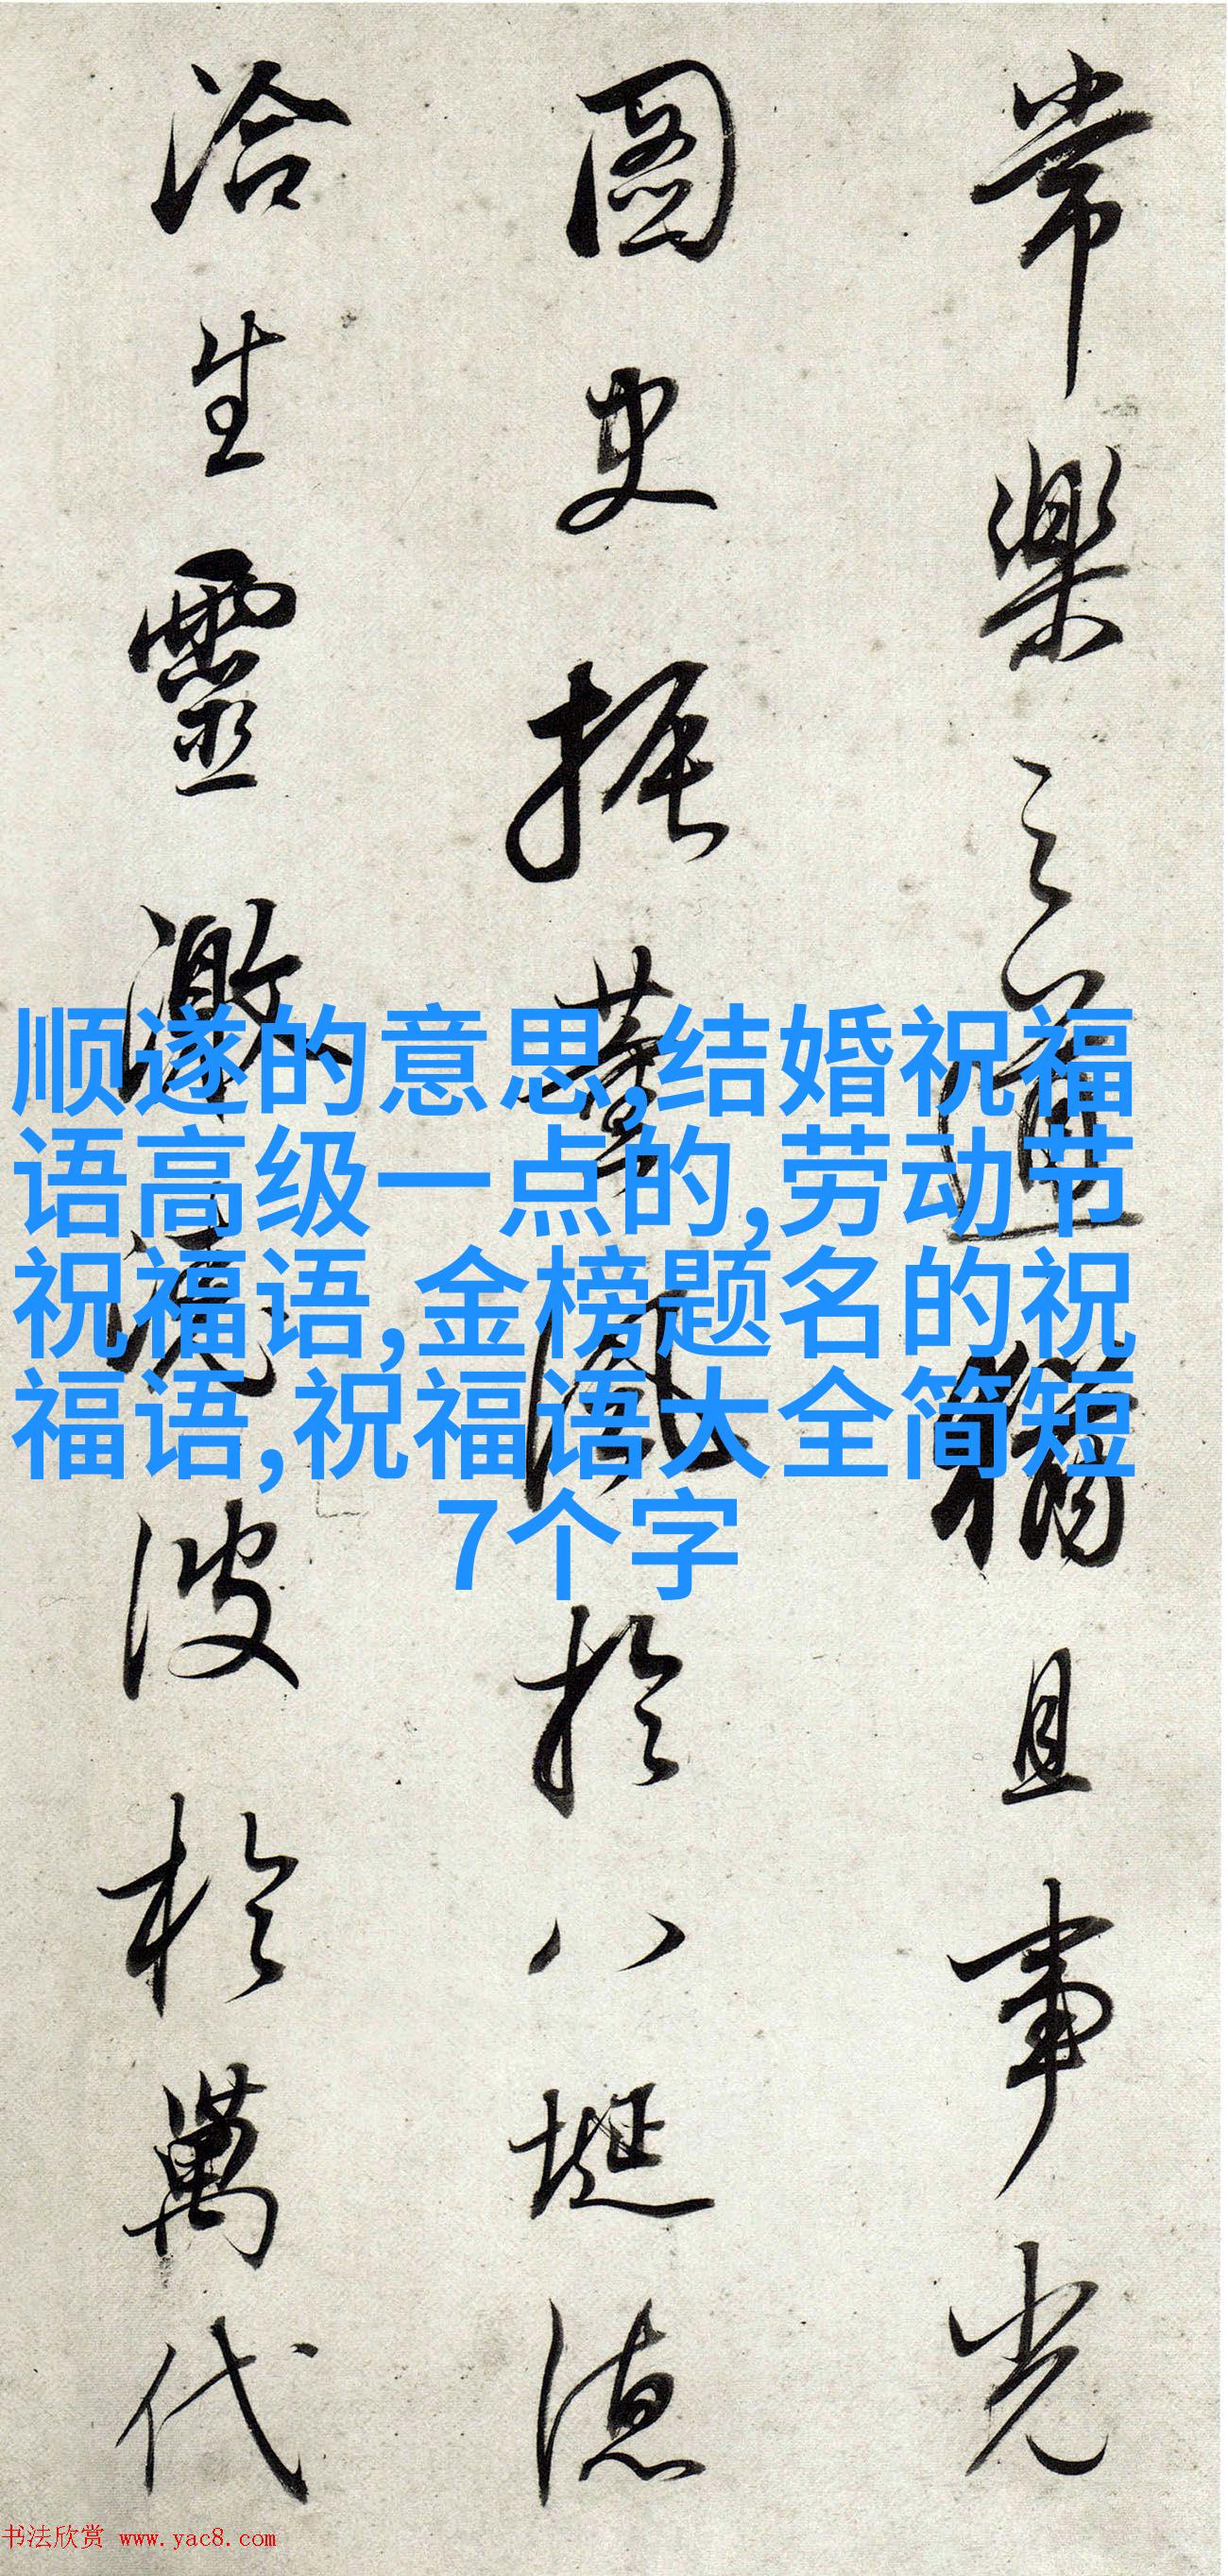 常樂之道猶且事光
圖史振薰風於八埏德
洽生靈激流波於萬代
顺遂的意思,结婚祝福
语高级一点的,劳动节
祝福语,金榜题名的祝
福语,祝福语大全简短
7个字
书法欣赏 www.yac8.com